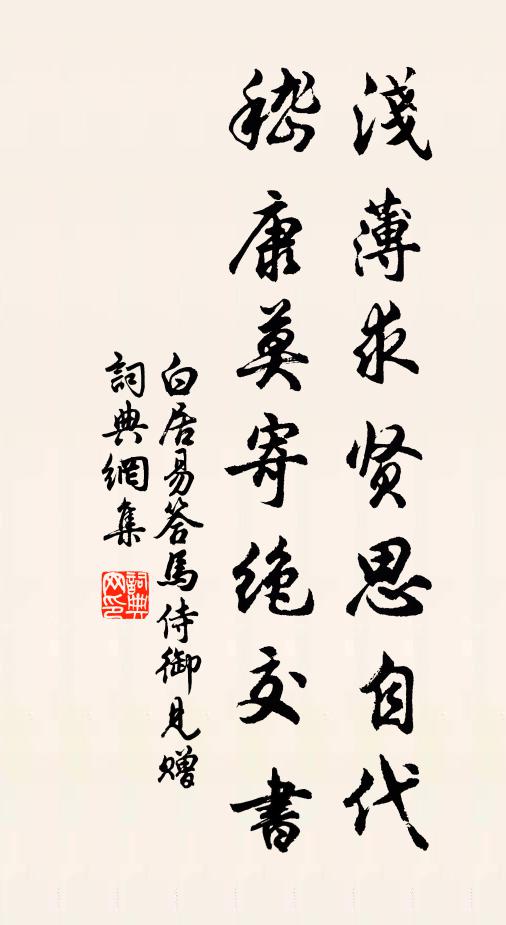 淺薄求贤思自代
嵇康莫寄绝交書
白居易答馬侍御見赠
詞典網集
詞典网印